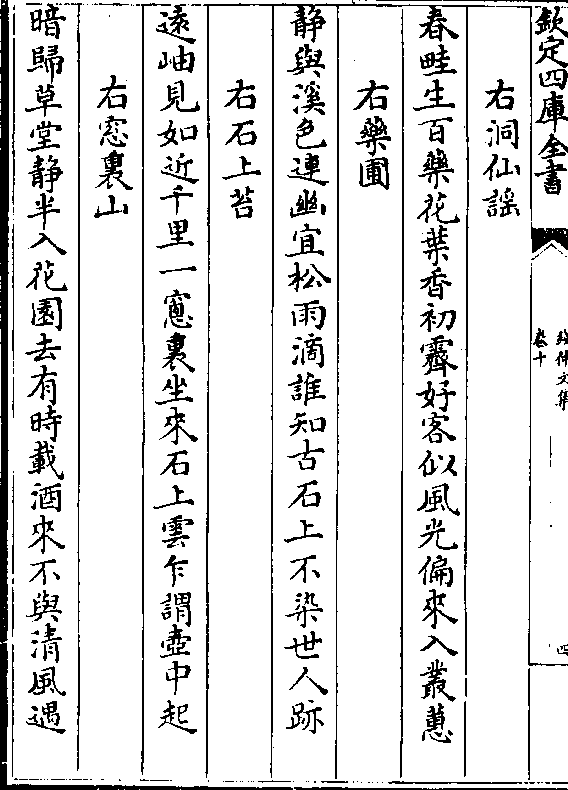 欽定四庫全書
錢仲文集
卷十
四
右洞仙謡
春畦生百藥花葉香初霽好客似風光偏來入叢蕙
右藥圃
静與溪色連幽宜松雨滴誰知古石上不染世人跡
右石上苔
逺岫見如近千里一窓裏坐來石上雲乍謂壺中起
右窓裏山
暗歸草堂静半入花園去有時載酒來不與清風遇